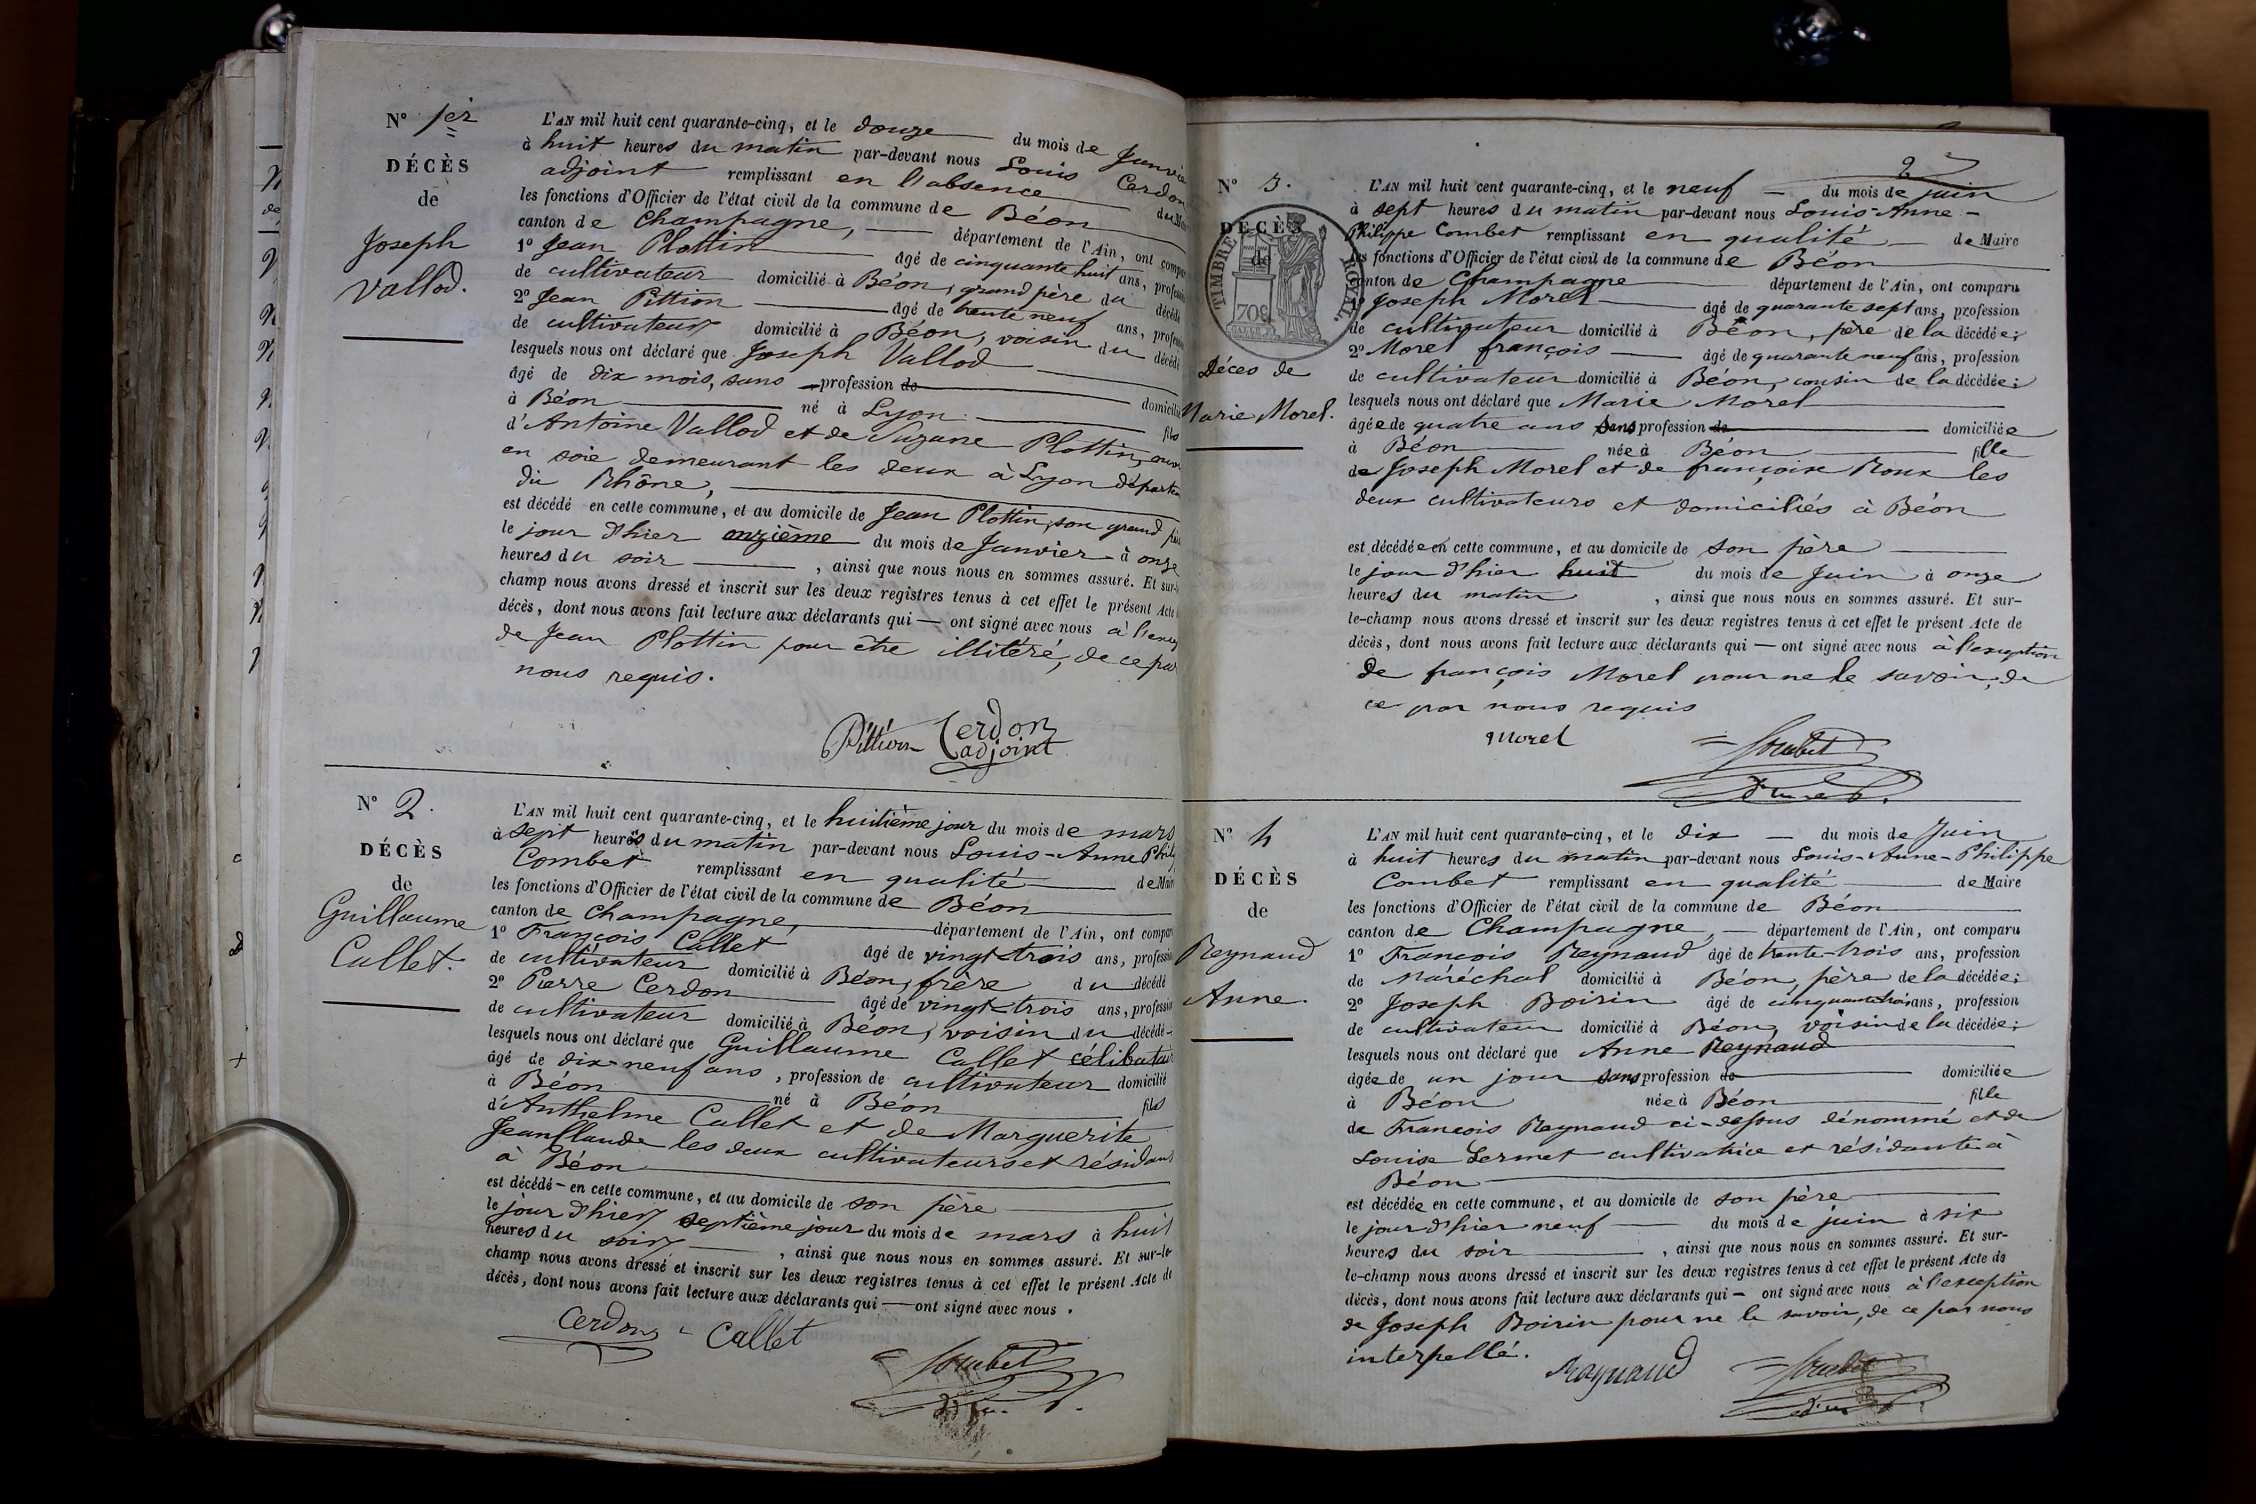 N° 1er
DÉCÈS
de
Joseph
Vallod.
L'AN mil huit cent quarante-cinq, et le douze du mois de Janvier
à huit heures du matin par-devant nous Louis Cerdon
adjoint remplissant en l'absence du
les fonctions d'Officier de l'état civil de la commune de Béon
canton de Champagne, département de l'Ain, ont
1° Jean Plottin âgé de cinquante huit ans,
de cultivateur domicilié à Béon, grand père du décédé
2° Jean Pittion âgé de trente neuf ans,
de cultivateur domicilié à Béon, voisin du décédé
lesquels nous ont déclaré que Joseph Vallod
âgé de dix mois, sans profession de domicilié
à Béon né à Lyon fils
d'Antoine Vallod et de Suzane Plottin,
en soie demeurant les deux à Lyon
du Rhône,
est décédé en cette commune, et au domicile de Jean Plottin, son grand
le jour d'hier onzième du mois de Janvier à onze
heures du soir, ainsi que nous nous en sommes assuré. Et sur-
champ nous avons dressé et inscrit sur les deux registres tenus à cet effet le présent Acte
décès, dont nous avons fait lecture aux déclarants qui — ont signé avec nous à
de Jean Plottin pour être illitéré, de ce par
nous requis.
Pittion Cerdon
adjoint
N° 2.
DÉCÈS
de
Guillaume
Callet.
L'AN mil huit cent quarante-cinq, et le huitième jour du mois de mars
à sept heures du matin par-devant nous Louis-Anne
Combet remplissant en qualité de Maire
les fonctions d'Officier de l'état civil de la commune de Béon
canton de Champagne, département de l'Ain, ont
1° François Callet âgé de vingt-trois ans,
de cultivateur domicilié à Béon, frère du décédé
2° Pierre Cerdon âgé de vingt-trois ans, profession
de cultivateur domicilié à Béon, voisin du décédé
lesquels nous ont déclaré que Guillaume Callet
âgé de dix-neuf ans, profession de cultivateur domicilié
à Béon né à Béon fils
d'Anthelme Callet et de Marguerite
JeanClaude les deux cultivateurs et
à Béon
est décédé - en cette commune, et au domicile de son père
le jour d'hier septième jour du mois de mars à huit
heures du soir, ainsi que nous nous en sommes assuré. Et sur-le
champ nous avons dressé et inscrit sur les deux registres tenus à cet effet le présent Acte de
décès, dont nous avons fait lecture aux déclarants qui — ont signé avec nous.
Cerdon Callet
Combet
2
N° 3.
DÉCÈS
de
TIMBRE ROYAL
Déces de
Marie Morel.
L'AN mil huit cent quarante-cinq, et le neuf — du mois de juin
à sept heures du matin par-devant nous Louis-Anne-
Philippe Combet remplissant en qualité de Maire
les fonctions d'Officier de l'état civil de la commune de Béon
canton de Champagne département de l'Ain, ont comparu
1° Joseph Morel âgé de quarante sept ans, profession
de cultivateur domicilié à Béon, père de la décédée;
2° Morel françois âgé de quarante neuf ans, profession
de cultivateur domicilié à Béon, cousin de la décédée;
lesquels nous ont déclaré que Marie Morel
âgée de quatre ans sans profession de domiciliée
à Béon née à Béon fille
de Joseph Morel et de françoise Roux les
deux cultivateurs et domiciliés à Béon
est décédée en cette commune, et au domicile de son père
le jour d'hier huit du mois de Juin à onze
heures du matin, ainsi que nous nous en sommes assuré. Et sur-
le-champ nous avons dressé et inscrit sur les deux registres tenus à cet effet le présent Acte de
décès, dont nous avons fait lecture aux déclarants qui — ont signé avec nous à l'exception
de françois Morel pour ne le savoir, de
ce par nous requis
Morel Combet
N° 4
DÉCÈS
de
Reynaud
Anne.
L'AN mil huit cent quarante-cinq, et le dix — du mois de Juin
à huit heures du matin par-devant nous Louis-Anne-Philippe
Combet remplissant en qualité de Maire
les fonctions d'Officier de l'état civil de la commune de Béon
canton de Champagne, — département de l'Ain, ont comparu
1° François Reynaud âgé de trente-trois ans, profession
de Maréchal domicilié à Béon, père de la décédée;
2° Joseph Boirin âgé de cinquante trois ans, profession
de cultivateur domicilié à Béon, voisin de la décédée;
lesquels nous ont déclaré que Anne Reynaud
âgée de un jour sans profession de domiciliée
à Béon née à Béon fille
de François Reynaud ci-dessus dénommé et de
Louise Sermet cultivatrice et résidante à
Béon
est décédée en cette commune, et au domicile de son père
le jour d'hier neuf du mois de juin à six
heures du soir, ainsi que nous nous en sommes assuré. Et sur-
le-champ nous avons dressé et inscrit sur les deux registres tenus à cet effet le présent Acte de
décès, dont nous avons fait lecture aux déclarants qui — ont signé avec nous à l'exception
de Joseph Boirin pour ne le savoir, de ce par nous
interpellé.
Raynaud Combet